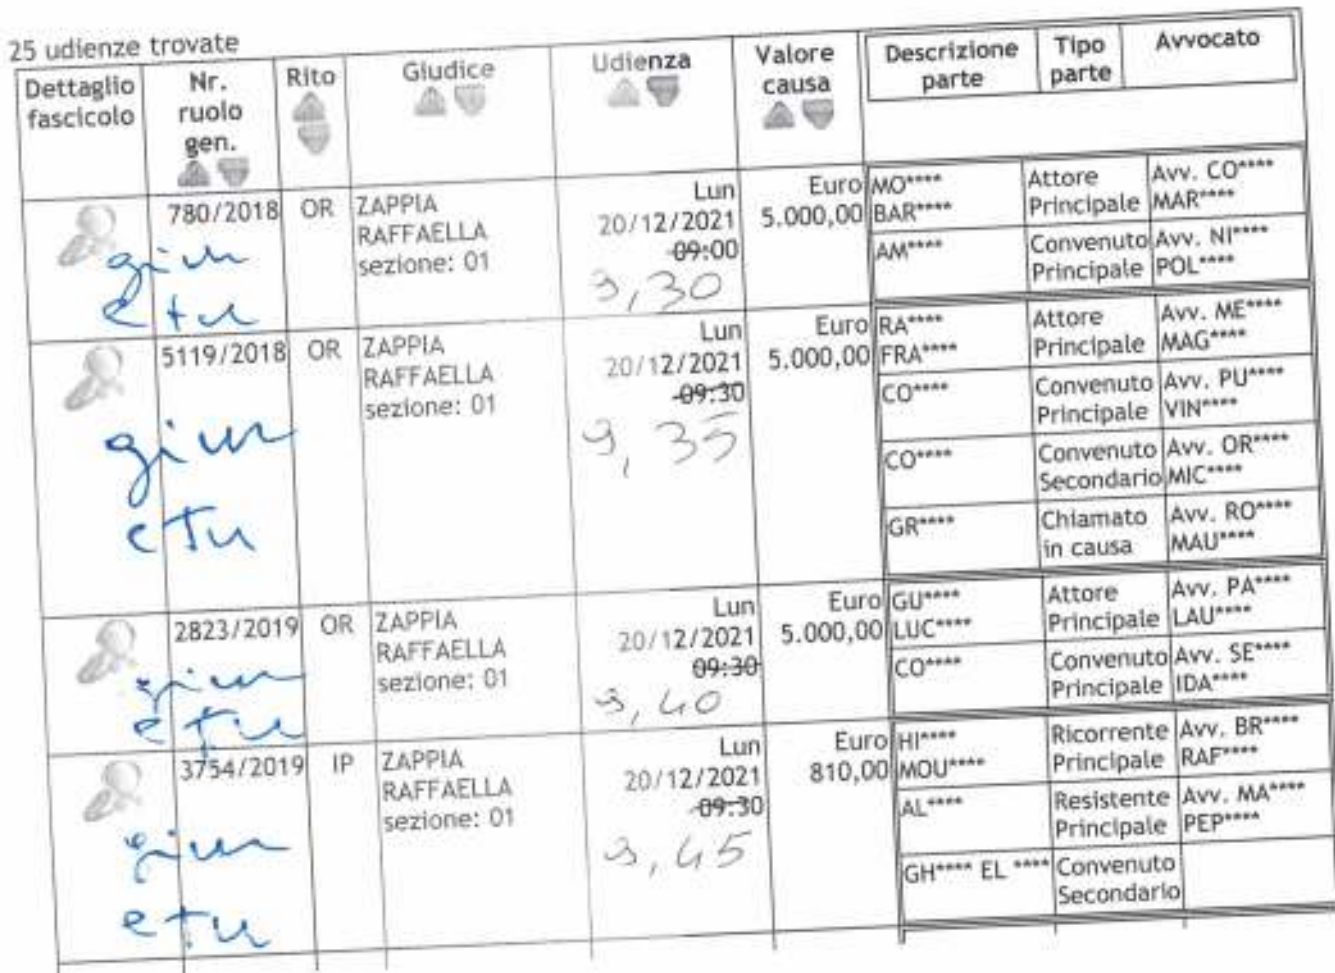 25 udienze trovate
Dettaglio fascicolo Nr. ruolo gen. Rito Giudice Udienza Valore causa Descrizione parte Tipo parte Avvocato
780/2018 OR ZAPPIA RAFFAELLA sezione: 01 Lun 20/12/2021 09:00 9,30 Euro 5.000,00
MO**** BAR**** Attore Principale Avv. CO**** MAR****
AM**** Convenuto Principale Avv. NI**** POL****
5119/2018 OR ZAPPIA RAFFAELLA sezione: 01 Lun 20/12/2021 09:30 9,35 Euro 5.000,00
RA**** FRA**** Attore Principale Avv. ME**** MAG****
CO**** Convenuto Principale Avv. PU**** VIN****
CO**** Convenuto Secondario Avv. OR**** MIC****
GR**** Chiamato in causa Avv. RO**** MAU****
2823/2019 OR ZAPPIA RAFFAELLA sezione: 01 Lun 20/12/2021 09:30 9,40 Euro 5.000,00
GU**** LUC**** Attore Principale Avv. PA**** LAU****
CO**** Convenuto Principale Avv. SE**** IDA****
3754/2019 IP ZAPPIA RAFFAELLA sezione: 01 Lun 20/12/2021 09:30 9,45 Euro 810,00
HI**** MOU**** Ricorrente Principale Avv. BR**** RAF****
AL**** Resistente Principale Avv. MA**** PEP****
GH**** EL **** Convenuto Secondario